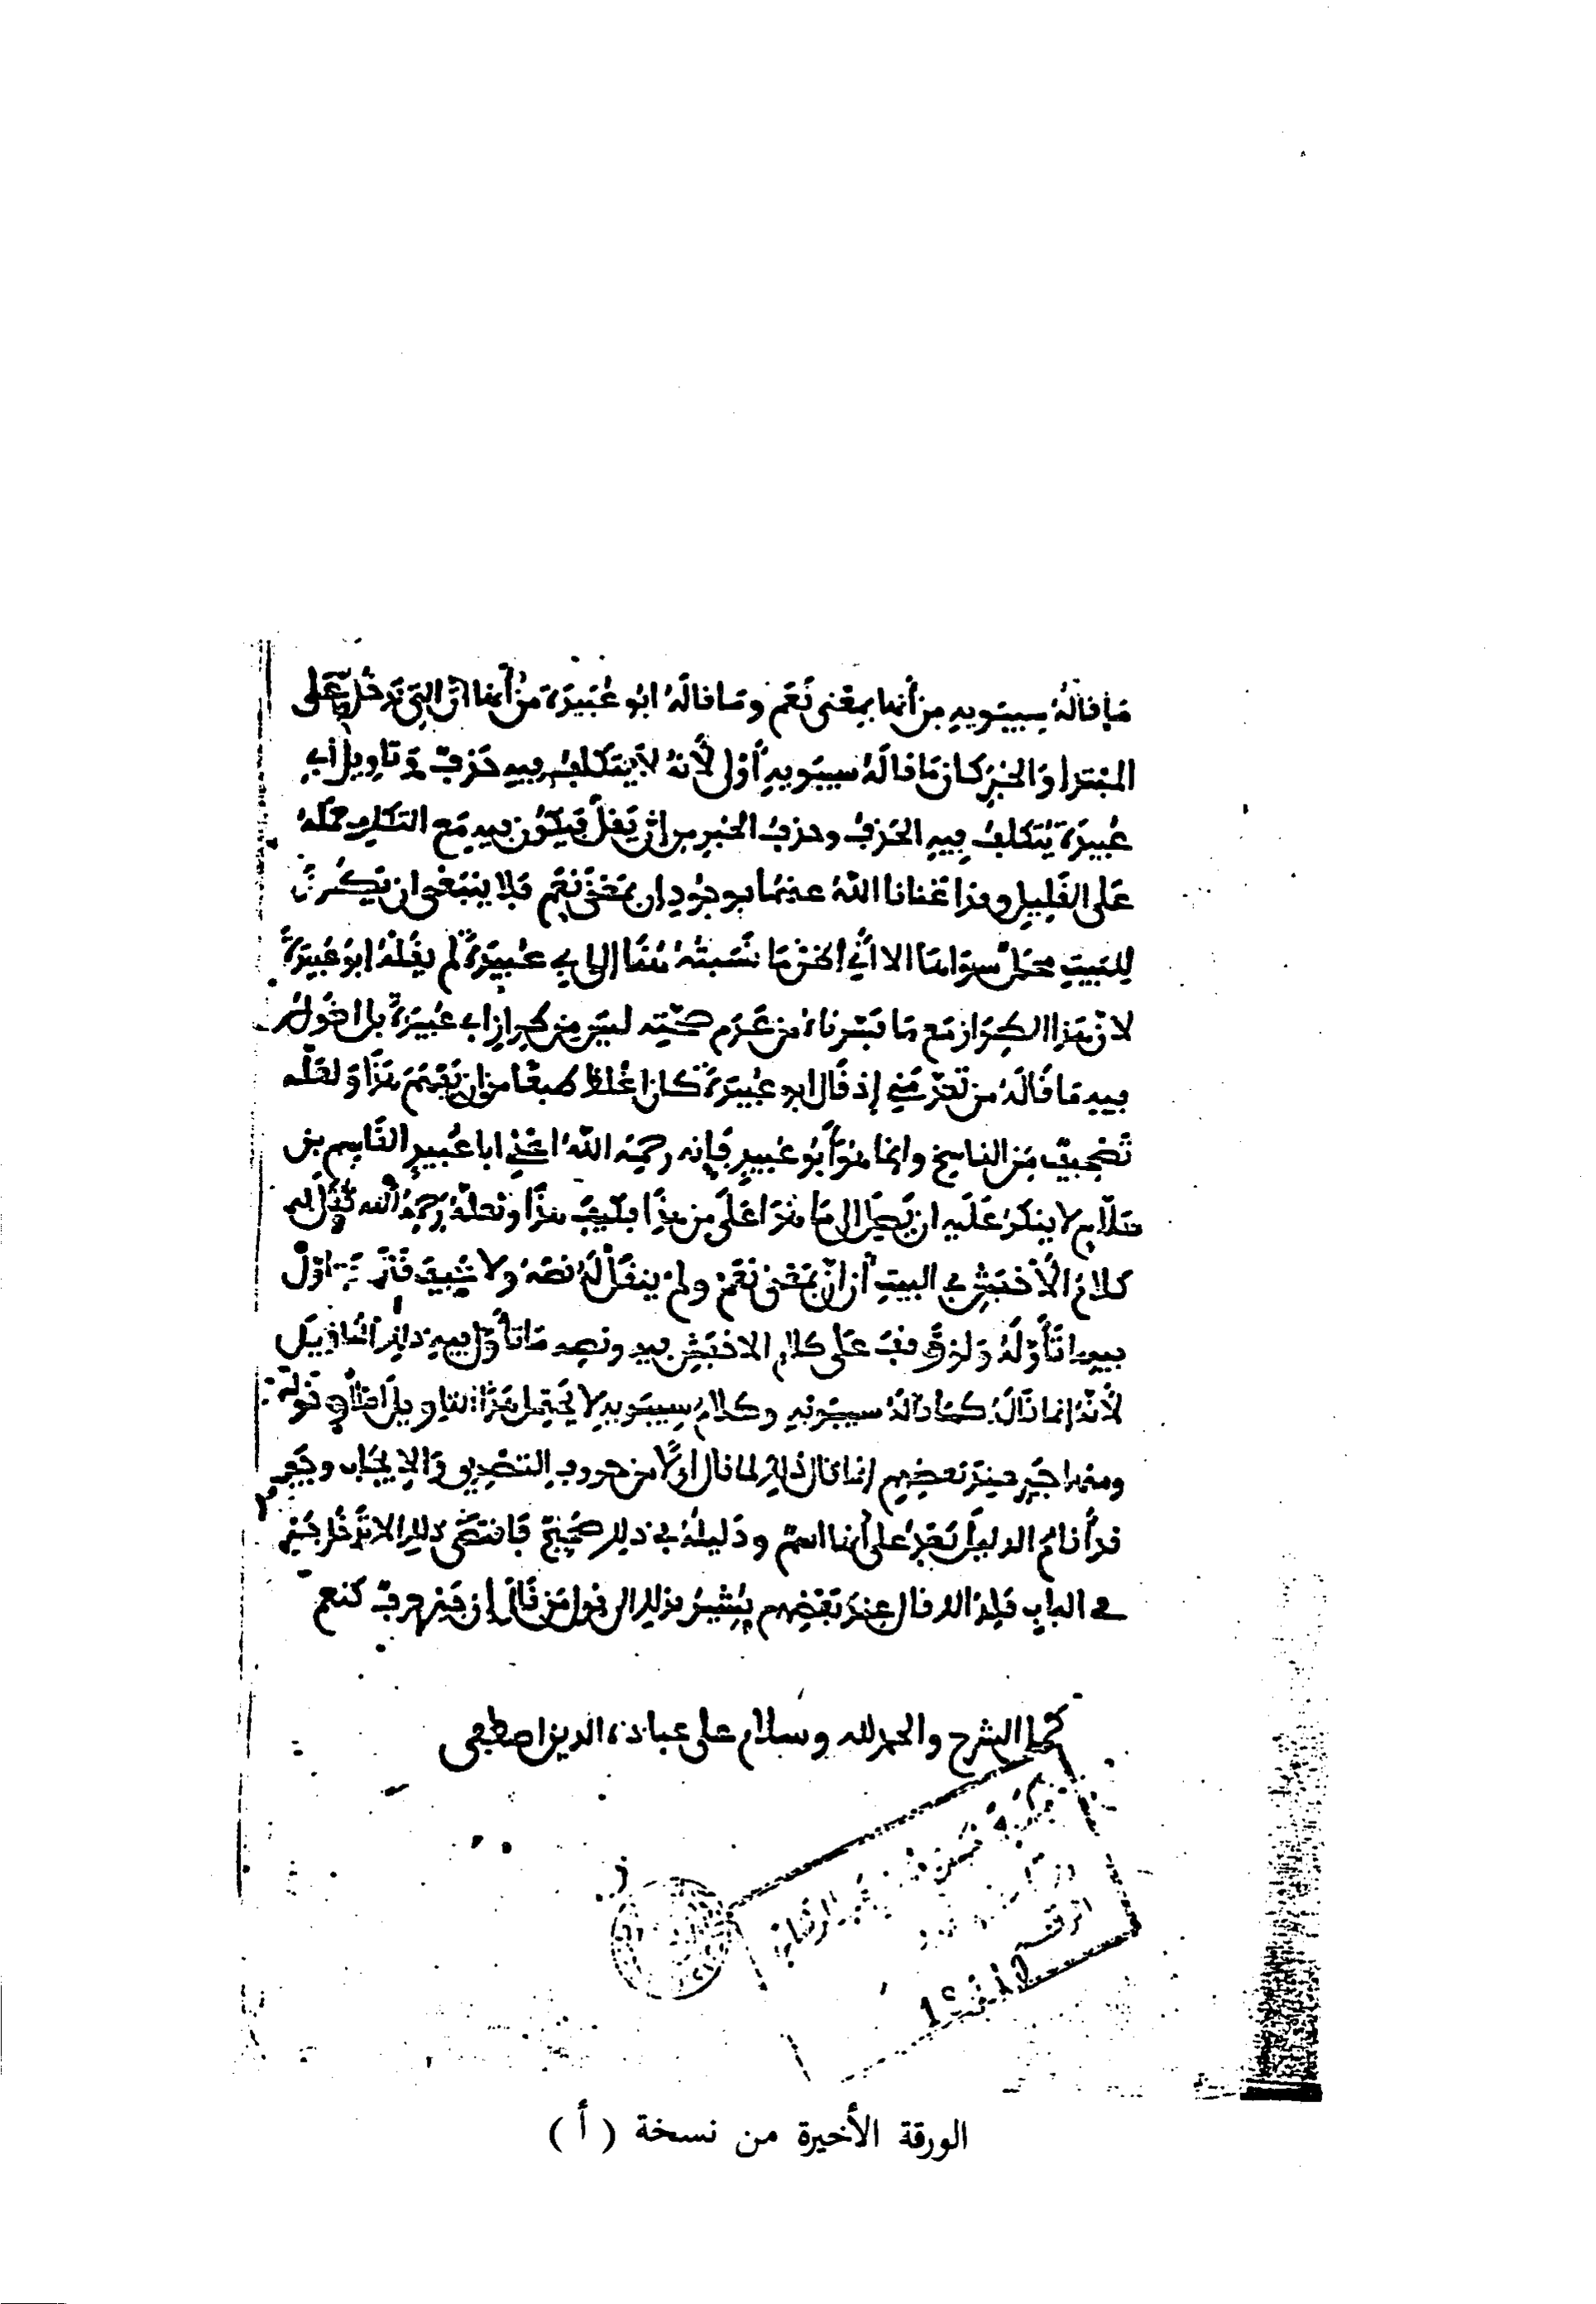 مَا قالَهُ سِيبَويهِ مِن أنها بِمعْنى نَعَم وَمَا قالَهُ ابُو عُبَيدَة مِنْ أنها انّ التِي تَدخُل عَلى
المبْتدا وَالخبَرِ كان مَا قالَهُ سِيبَويهِ أوْلى لأنهُ لا يَتكلفُ فِيهِ حَذفٌ وَتاوِيل أبِي
عُبيدَة يُتَكلفُ فِيهِ الحَذفُ وحذفُ الخبَرِ مِن انّ يَقلّ فَيكُون فِيهِ مَع التكلفِ حملهُ
عَلى القَلِيلِ وقد اغنانا اللّهُ عنهُما بِوجُودِ ان بمَعْنى نَعَم فَلا ينبَغى ان يَكُون
لِلبَيتِ محمَل سِوَاهَا الا انّي اظن مَا نَسَبتُهُ هُنَا إلى أبِي عُبَيدَة لَم يقُلهُ ابُو عُبَيدَة
لانّ هَذا الطِرَاز مَع مَا فسّرناهُ من عَدَم صحّتِه ليسَ مِن طِرازِ ابِي عُبَيدَة بل اقولُ
فِيهِ مَا قَالَهُ مَن تقدّمَني إذ قال ابو عُبَيدَة كان اغْلظ طبعًا مِن ان يَفهَمَ هَذَا وَلعَلّه
تَصْحِيفٌ مِن الناسِخِ وانما هُوَ أبُو عُبَيدٍ فإنه رحمَهُ اللّهُ اعْنِي ابا عُبَيدٍ القَاسِم بن
سَلّام لا ينكَرُ عَلَيهِ ان يَصِلَ الى مَا هُوَ اعْلَى مِن هذَا فكيفَ هذَا ولعلّهُ رَحِمَهُ اللّه نُقِلَ له
كلامُ الأخفَشِ فِي البيتِ أن انّ بمَعْنى نَعَم ولم ينقَلْ لَهُ نصّهُ
فِيهِ مَا تَأوّلَهُ وَلو وَقفَ عَلَى كلامِ الاخفَشِ فِيهِ ونصِهِ مَا تأوّل فِيهِ ذلك التَاوِيلَ
لأنّهُ إنما قالَ كمَا قالَهُ سيبَويهِ وكلامُ سِيبَويهِ لا يحتمِل هَذَا التاوِيلَ اصْلًا وقولهُ
ومنها جَيرِ عِندَ بَعضِهِم إنما قال ذلِك لما قال اوّلًا مِن حروفِ التصْدِيقِ وَالإيجَابِ وجَير
قدْ أقامَ الدلِيلَ بَعْدُ عَلى أنها اسمٌ ودَلِيلهُ فِي ذلِك صحِيح فاقتضَى ذلِك الا تَدْخُل جَيرِ
فِي البابِ فلِذلك قال عِندَ بَعْضِهِم يُشِيرُ بذلِك الى قولِ مَن قالَ إن جَيرِ حرفٌ كنعم
كمل الشرح والحمد لله وسلام على عباده الذين اصطفى
الرقم
الورقة الأخيرة من نسخة ( أ )